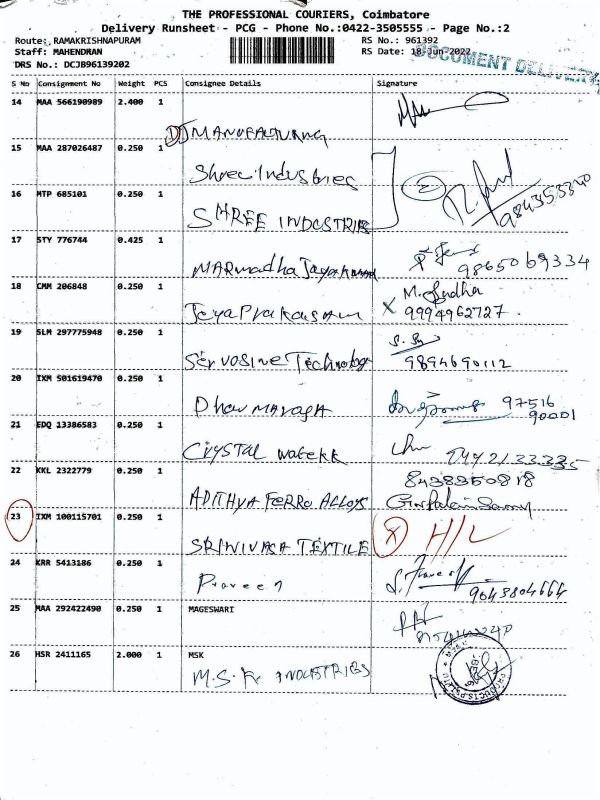 THE PROFESSIONAL COURIERS, Coimbatore
Delivery Runsheet - PCG - Phone No.:0422-3505555 - Page No.:2
Route: RAMAKRISHNAPURAM RS No.: 961392
Staff: MAHENDRAN RS Date: 18-Jun-2022
DRS No.: DCJB96139202
DOCUMENT DELIVERY
S No Consignment No Weight PCS Consignee Details Signature
14 MAA 566190989 2.400 1
MANUFACTURING
15 MAA 287026487 0.250 1
Shree Industries
16 MTP 685101 0.250 1
SHREE INDUSTRIES
2
9843553340
17 STY 776744 0.425 1
MARmadha Jayakumar
9865069334
18 CMM 206848 0.250 1
JeyaPrakasam
X M. Sudha
9994962727.
19 SLM 297775948 0.250 1
Servosine Technology
9894690112
20 IXM 501619470 0.250 1
97516
90001
21 EDQ 13386583 0.250 1
CrySTAL
22 KKL 2322779 0.250 1
8438350818
ADITHYA FERRO ALLOYS
23 IXM 100115701 0.250 1
SRINIVASA TEXTILE
X H/L
24 KRR 5413186 0.250 1
Praveen
9043804664
25 MAA 292422490 0.250 1 MAGESWARI
26 HSR 2411165 2.000 1 MSK
M.S.K. INDUSTRIES